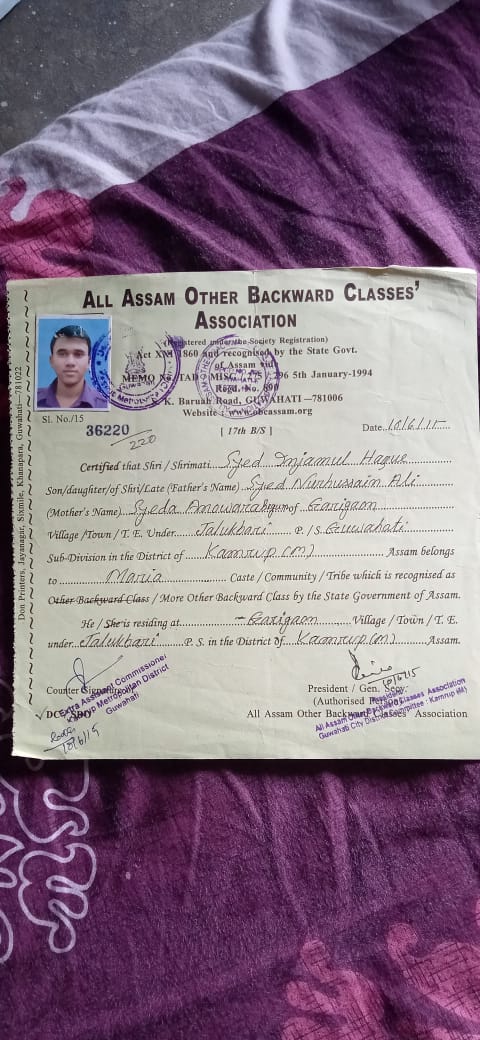 ALL ASSAM OTHER BACKWARD CLASSES'
ASSOCIATION
(Registered under the Society Registration)
Act XXI 1860 and recognised by the State Govt.
of Assam vid
MEMO NO. TAD / MISC / 296 5th January-1994
Regd. No. 800
K. Baruah Road, GUWAHATI-781006
Website : www.obcassam.org
Sl. No./15
36220
220
[ 17th B/S ]
Date 10/6/15
Certified that Shri / Shrimati Syed Injamul Haque
Son/daughter/of Shri/Late (Father's Name) Syed Nurhussain Ali
(Mother's Name) Syeda of Garigaon
Village /Town / T. E. Under Jalukbari P. / S. Guwahati
Sub-Division in the District of Kamrup (M) Assam belongs
to Maria Caste / Community / Tribe which is recognised as
Other Backward Class / More Other Backward Class by the State Government of Assam.
He / She is residing at Garigaon Village / Town / T. E.
under Jalukbari P. S. in the District of Kamrup (M) Assam.
10/6/15
Counter Signature of
Extra Assistant Commissioner
Kamrup Metropolitan District
Guwahati
DC / SDO
10/6/15
President / Gen. Secy.
(Authorised Person)
All Assam Other Backward Classes' Association
President
All Assam Other Backward Classes Association
Guwahati City District Committee : Kamrup (M)
Don Printers, Jayanagar, Sixmile, Khanapara, Guwahati-781022